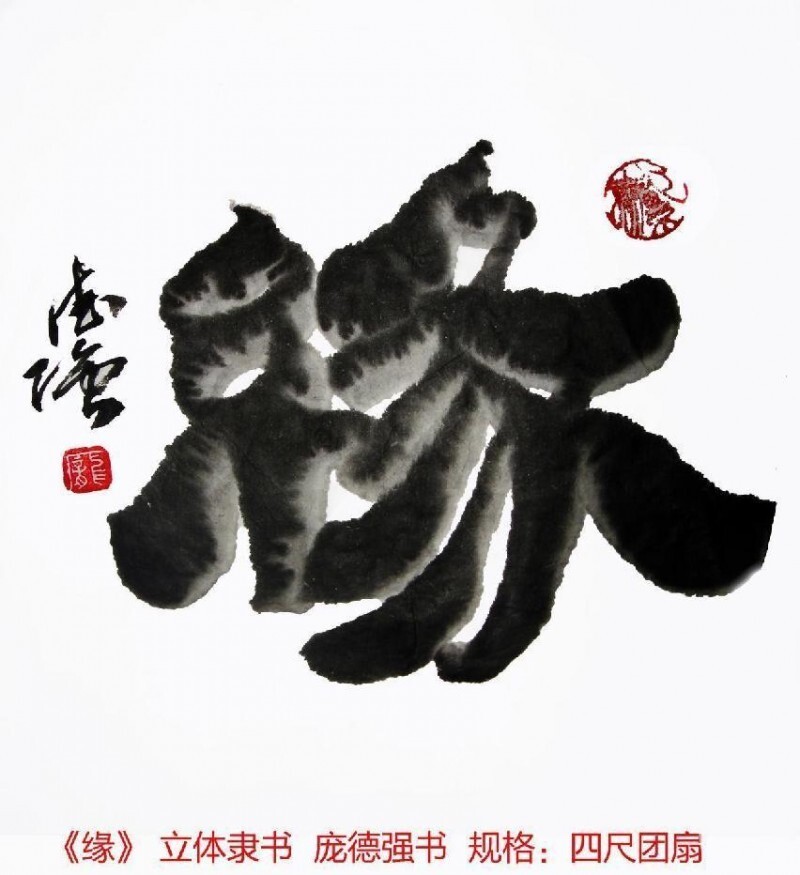 緣
德强
龎
《缘》 立体隶书 庞德强书 规格：四尺团扇